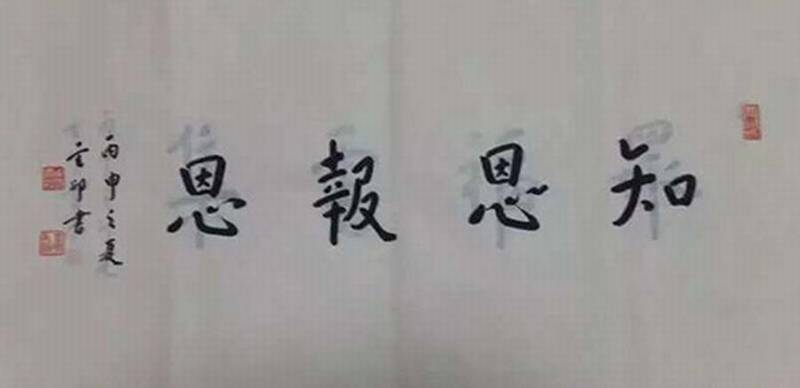 知恩報恩
丙申之夏
言邛書